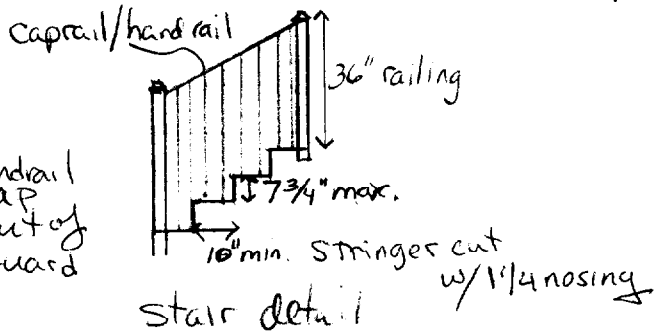 caprail/handrail
36" railing
ndrail
ap
ut of
uard
7 3/4" max.
10" min. Stringer cut
w/ 1 1/4 nosing
Stair detail